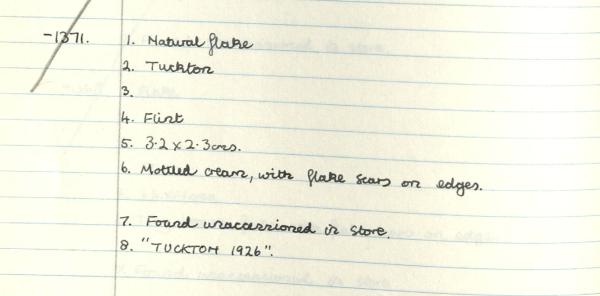 -1371. 1. Natural flake
2. Tuckton
3.
4. Flint
5. 3.2 x 2.3cms.
6. Mottled cream, with flake scars on edges.
7. Found unaccessioned in store.
8. "TUCKTON 1926".